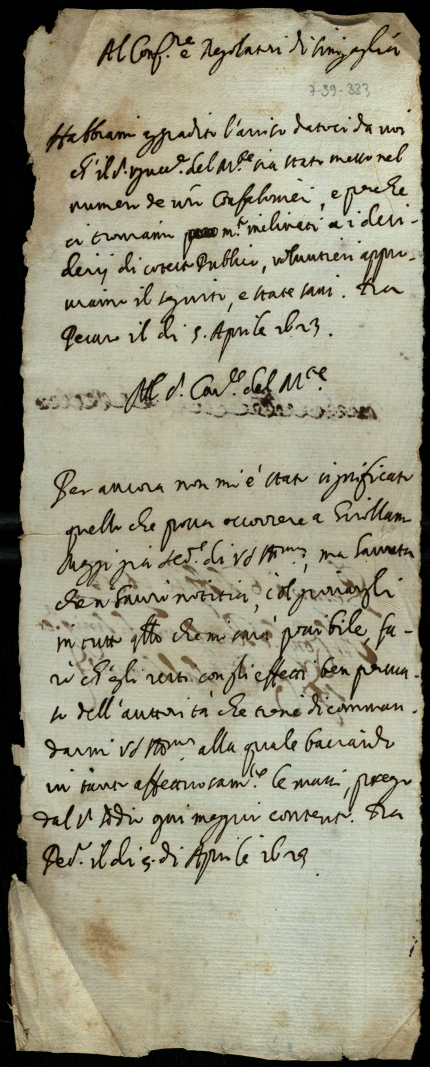 Al Conf.re e Regolatori di Sinigaglia
7-39-333
Habbiamo aggradito l'aviso datoci da voi
ch'il s.r del M.se sia stato messo nel
numero de v.ri Confalonieri, e perche
ci troviamo m.o inclinati a i desi-
derij di cotesto Publico, volentieri appro-
viamo il seguito, e state sani. Da
Pesaro il di 5. Aprile 1623.
Al s.r Car.le del M.te
Per ancora non mi è stato significato
quello che possa occorrere a Girolamo
già di V S Ill.ma, ma
che n'havrò notitia, col
in tutto q.llo che mi sarà possibile, fa-
rò ch'egli resti con gli effetti ben persua-
so dell'auttorità che tiene di comman-
darmi V S Ill.ma alla quale baciando
in tanto affettuosam.te le mani, prego
dal s.r Iddio ogni maggior contento. Da
Pes.o il di 5. di Aprile 1623